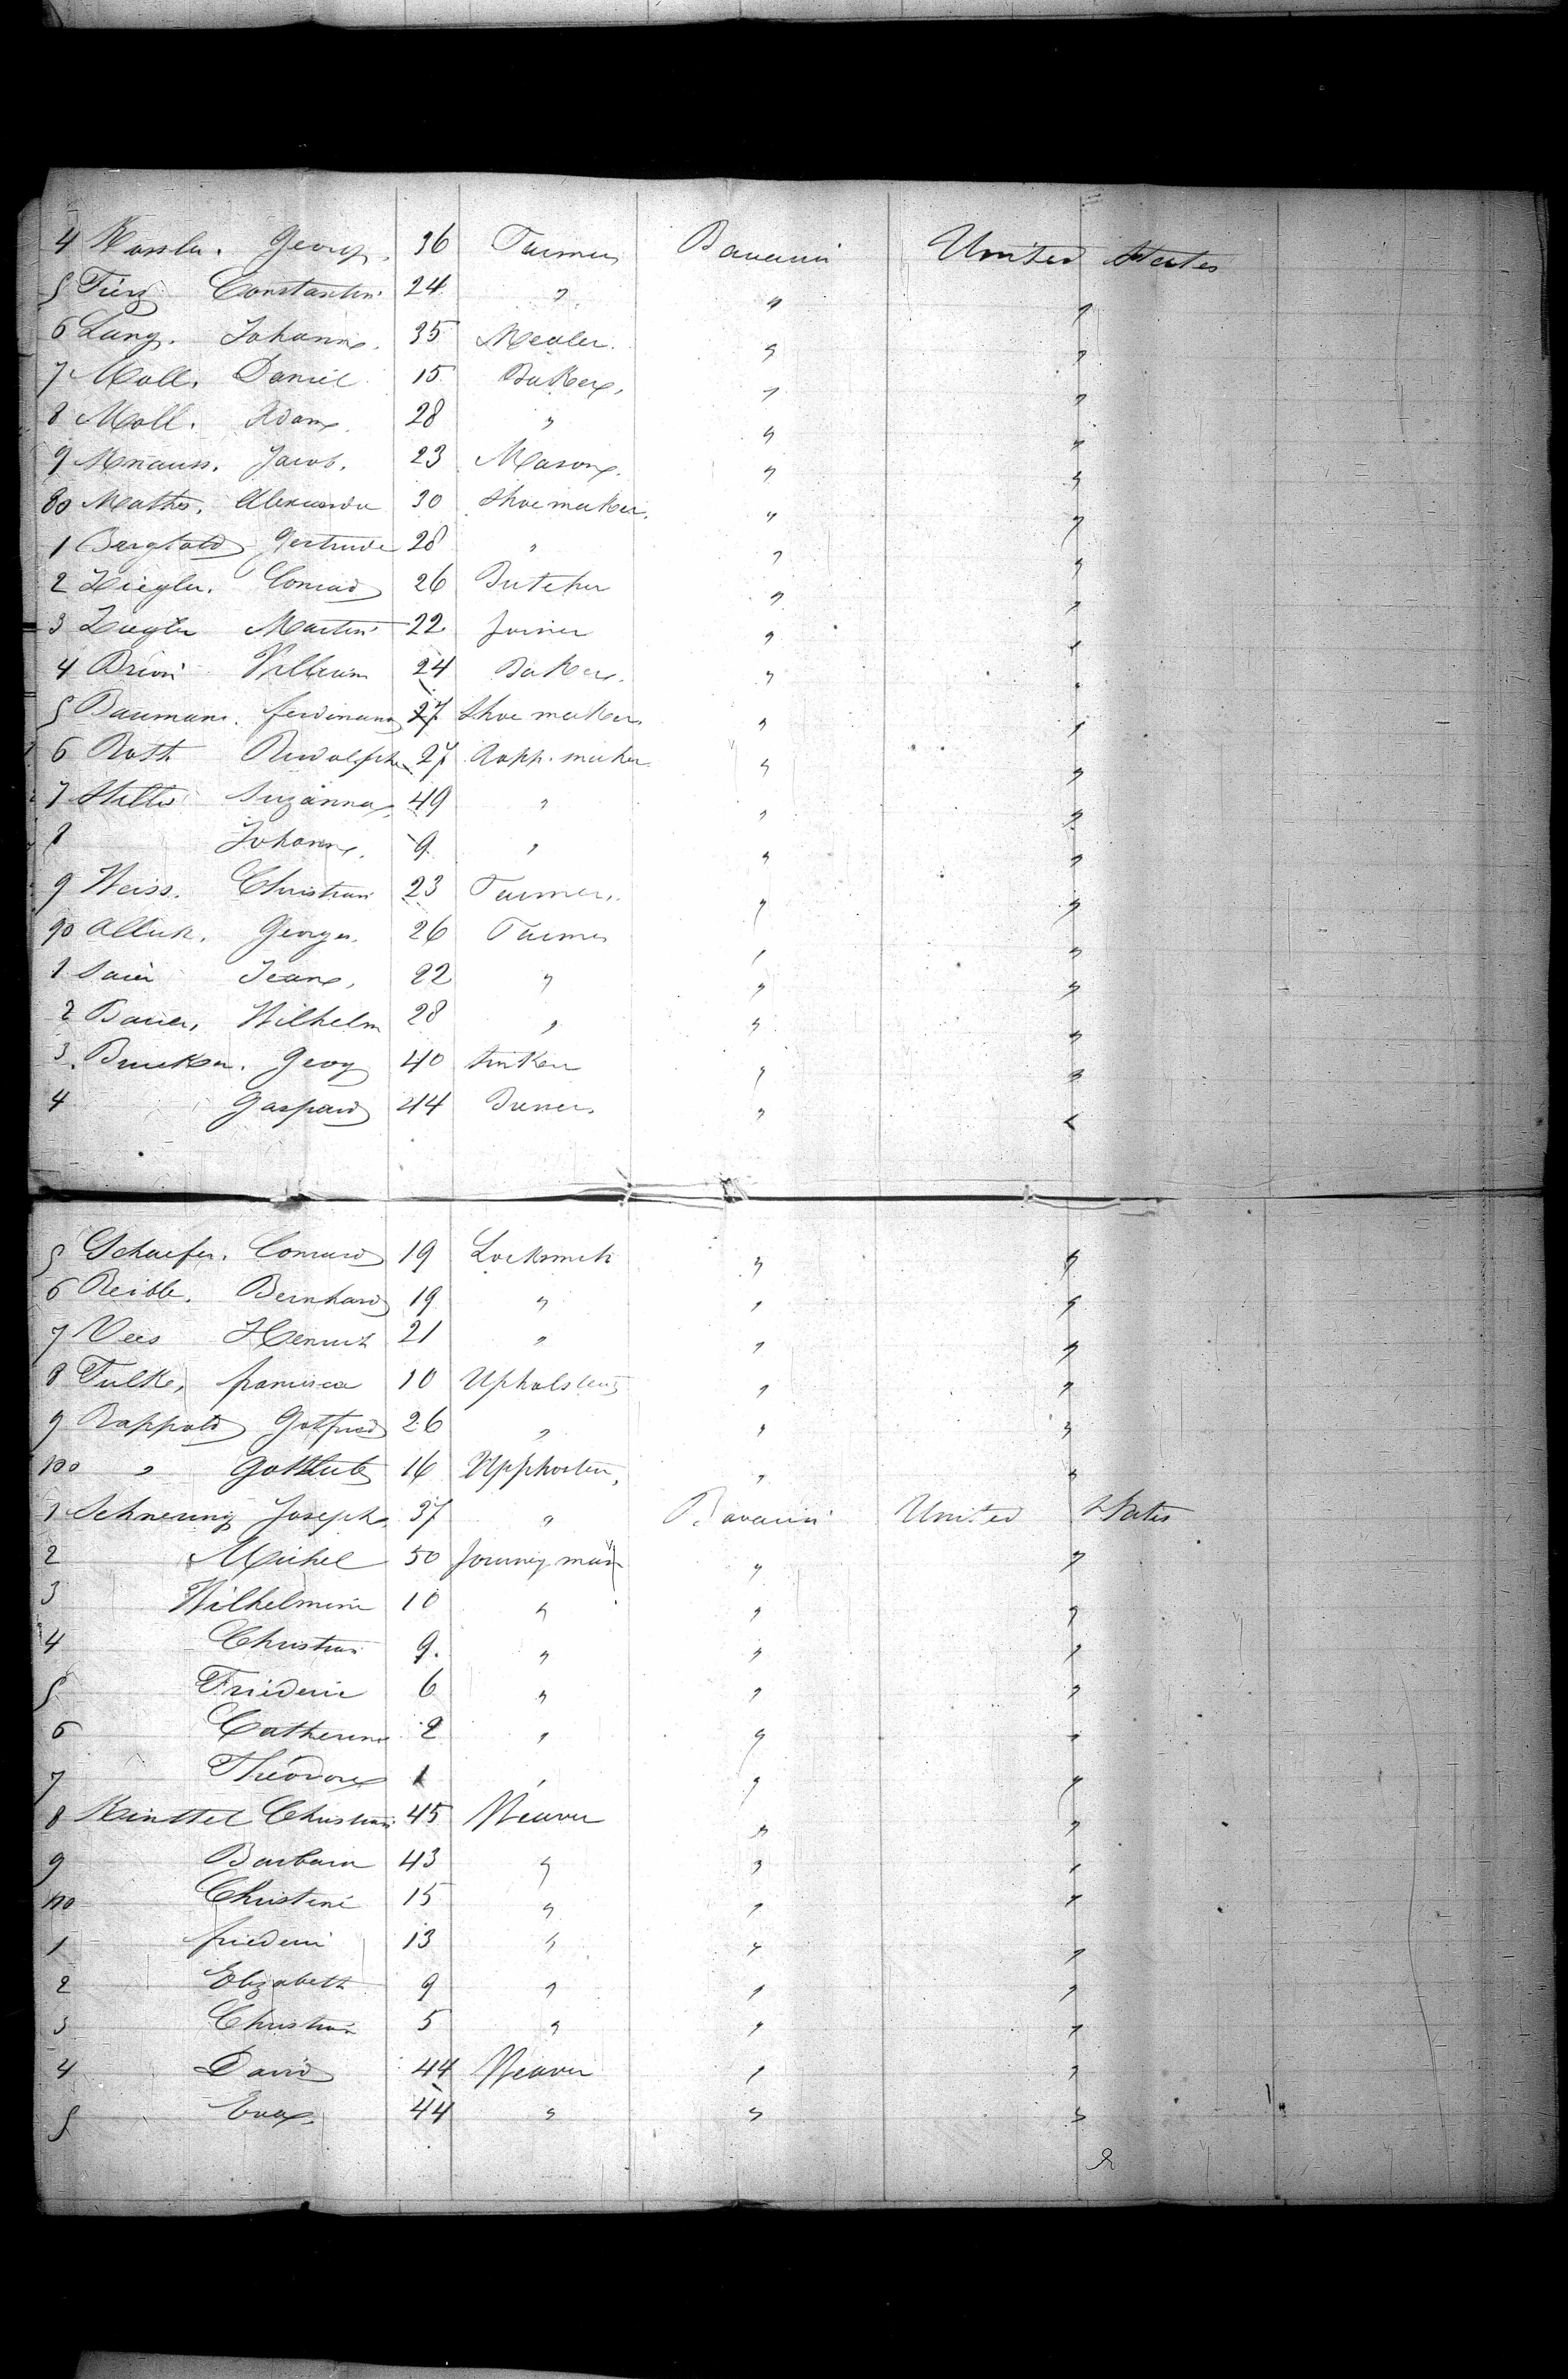 4 Kassler. Georg. 36 Farmer Bavaria United States
5 Constantin 24 " " "
6 Lang. Johann. 35 Mealer. " "
7 Moll. Daniel 15 Baker, " "
8 Moll. Adam. 28 " " "
9 Knauss. Jacob. 23 Mason. " "
80 Mathes. Alexander 30 Shoemaker. " "
1 Bergtold Gertrude 28 " " "
2 Ziegler. Conrad 26 Butcher " "
3 Ziegler Martin 22 Joiner " "
4 William 24 Baker. " "
5 Baumann. ferdinand 27 Shoe maker " "
6 Roth Rudolph 27 maker " "
7 Suzanna 49 " " "
8 Johann. 9 " " "
9 Weiss. Christian 23 Farmer. " "
90 Georges. 26 Farmer " "
1 Jean, 22 " " "
2 Bauer, Wilhelm 28 " " "
3. Brucker. Georg 40 " "
4 Gaspard 44 " "
5 Schaefer. Conrard 19 Locksmith " "
6 Reible. Bernhard 19 " " "
7 Vees Henrich 21 " " "
8 Fulk, francisca 10 Upholsterer " "
9 Rappold Gotfried 26 " " "
100 " Gottlieb 16 " "
1 Schnering Joseph. 37 " Bavaria United States
2 Michel 50 Journeyman " "
3 Wilhelmine 10 " " "
4 Christian 9. " " "
5 Friederic 6 " " "
6 Catherine 2 " " "
7 Theodore 1 " " "
8 Kinttel Christian 45 Weaver " "
9 Barbara 43 " " "
110 Christine 15 " " "
1 friederi 13 " " "
2 Elizabeth 9 " " "
3 Christian 5 " " "
4 David 44 Weaver " "
5 Eva. 44 " " "